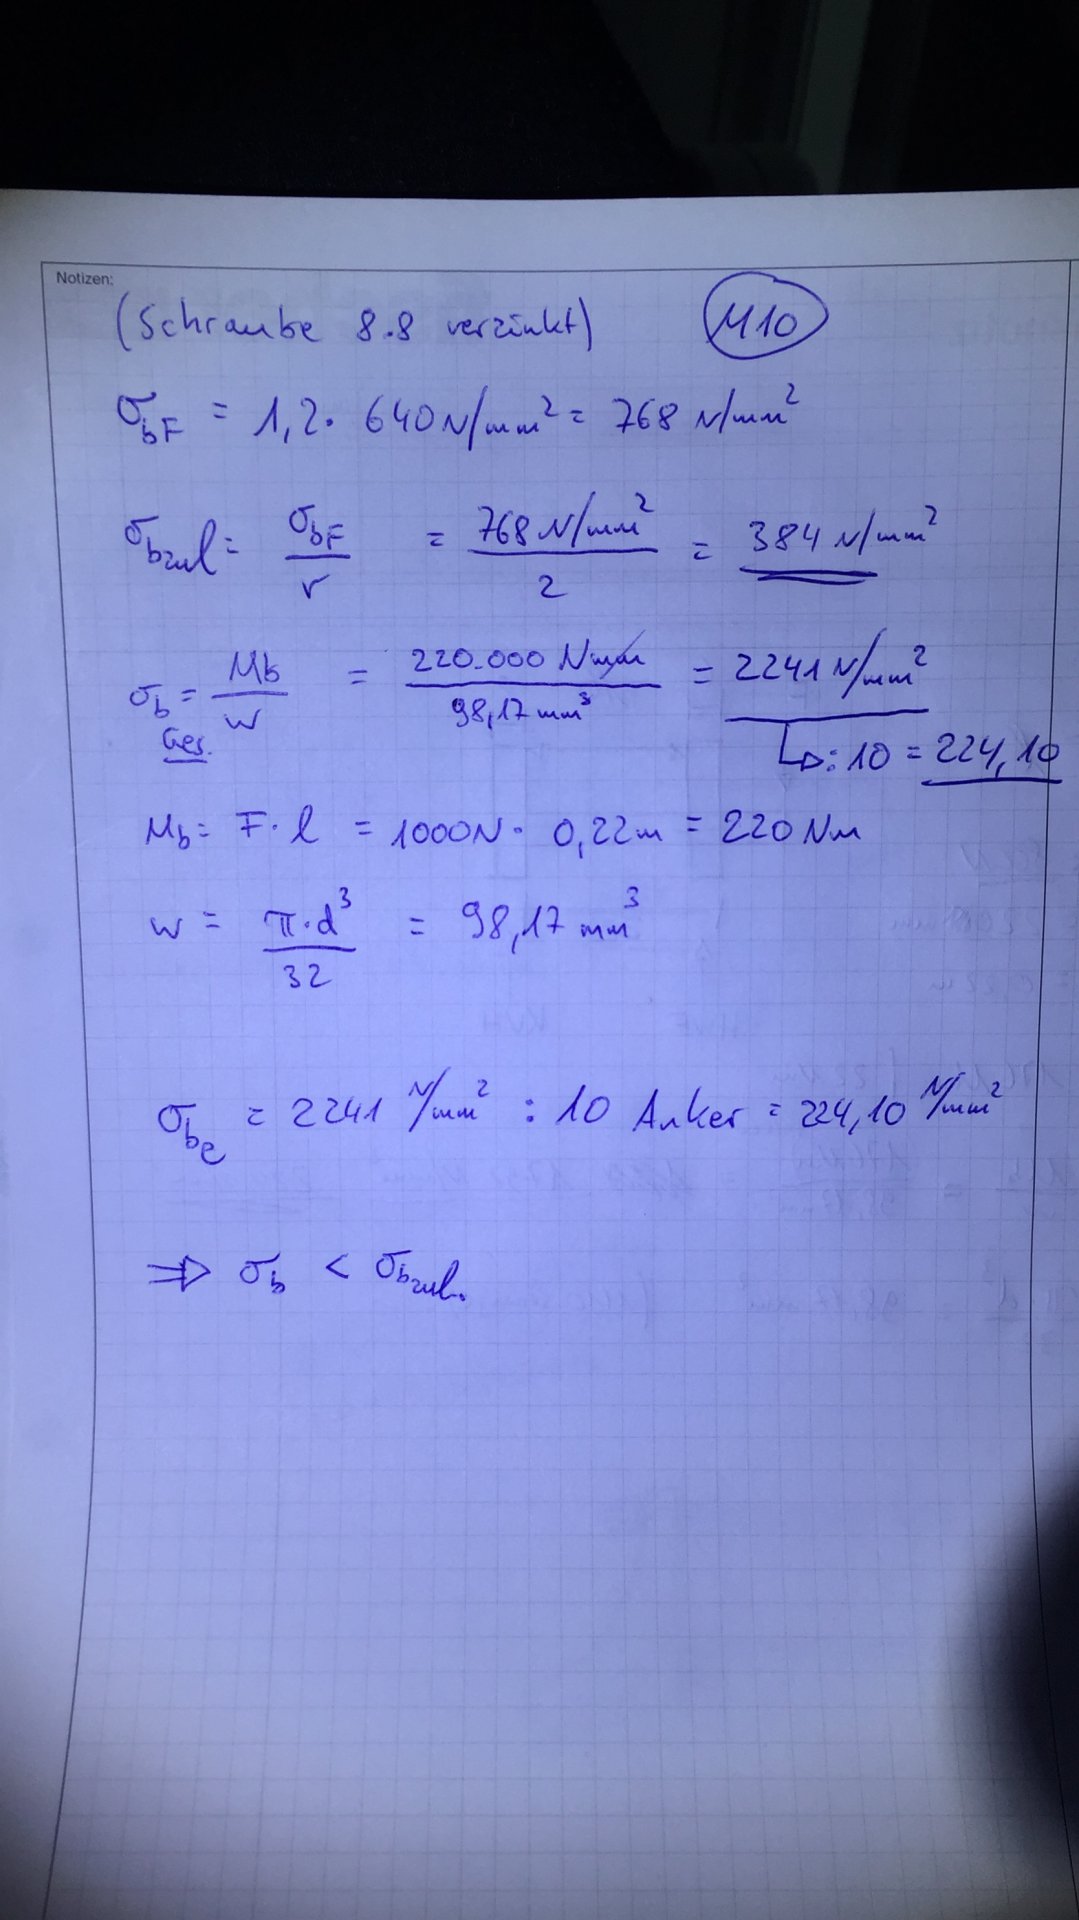 Notizen:
(Schraube 8.8 verzinkt) M10
σbF = 1,2 · 640 N/mm² = 768 N/mm²
σbzul = σbF / ν = 768 N/mm² / 2 = 384 N/mm²
σb Ges. = Mb / W = 220.000 Nmm / 98,17 mm³ = 2241 N/mm²
↳ : 10 = 224,10
Mb = F · l = 1000N · 0,22m = 220 Nm
W = π · d³ / 32 = 98,17 mm³
σbe = 2241 N/mm² : 10 Anker = 224,10 N/mm²
⇒ σb < σbzul.